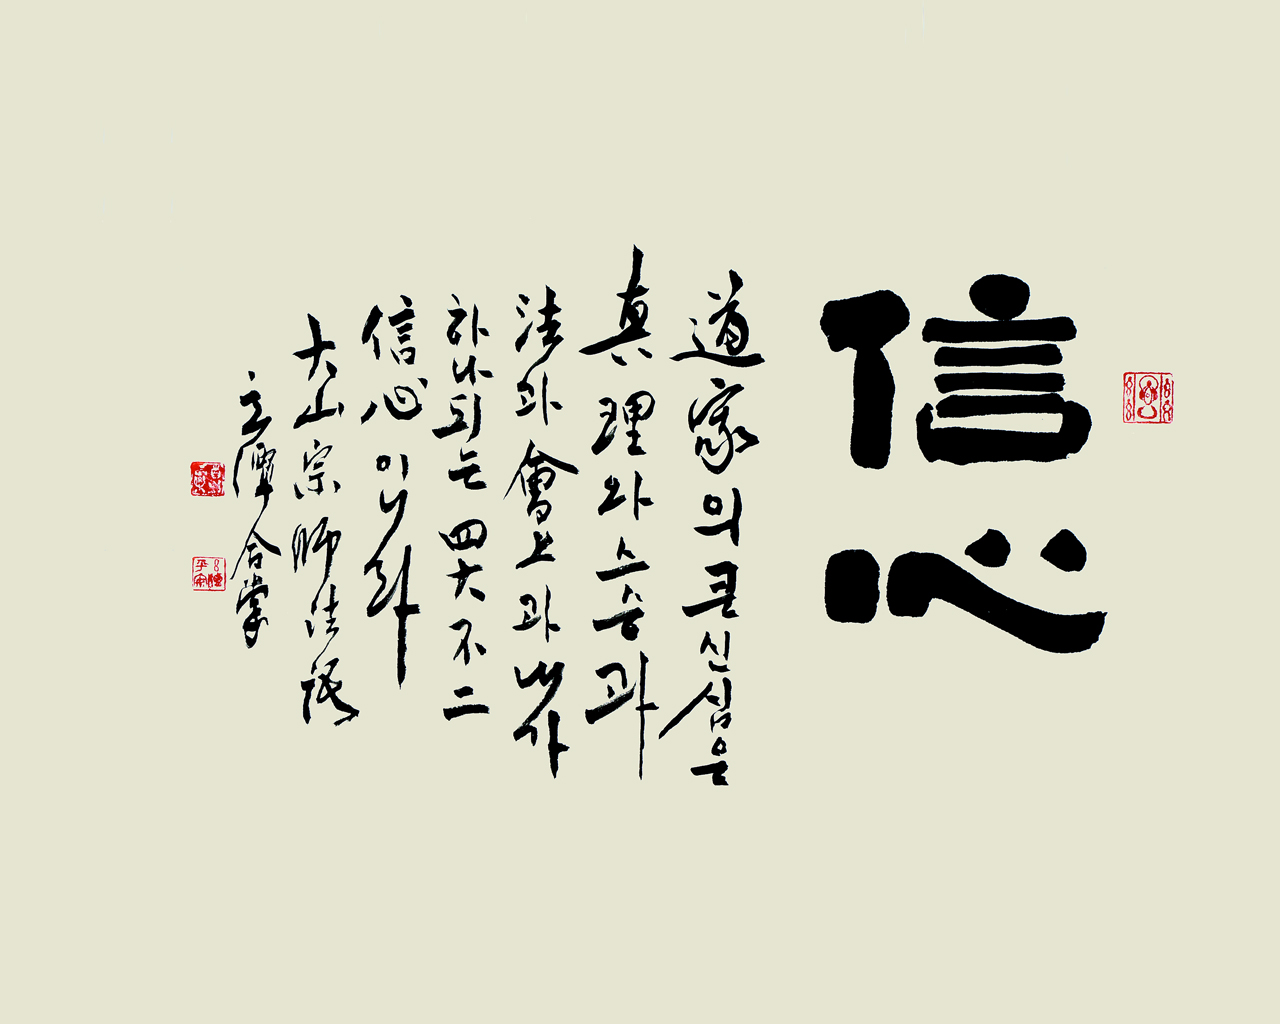 信心
道家의 큰 신심은
眞理와 스승과
法과 會上과 내가
하나 되는 四大不二
信心이니라
大山宗師法語
立潭合掌